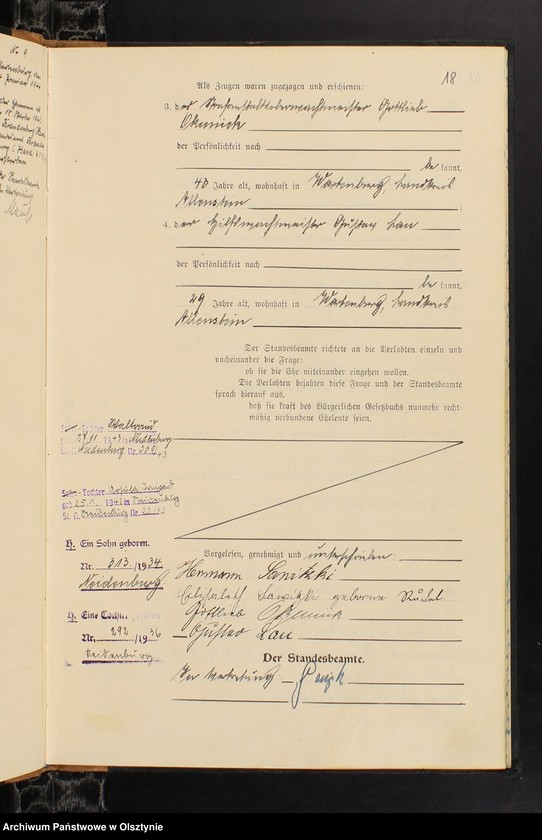 No 9
18
Als Zeugen waren zugezogen und erschienen:
3. der Strafanstaltoberwachtmeister Gottlieb
Okunick
der Persönlichkeit nach
bekannt,
40 Jahre alt, wohnhaft in Wartenburg, Landkreis
Allenstein
4. der Hilfswachtmeister Gustav Lau
der Persönlichkeit nach
bekannt,
29 Jahre alt, wohnhaft in Wartenburg, Landkreis
Allenstein
Der Standesbeamte richtete an die Verlobten einzeln und
nacheinander die Frage:
ob sie die Ehe miteinander eingehen wollen.
Die Verlobten bejahten diese Frage und der Standesbeamte
sprach hierauf aus,
daß sie kraft des Bürgerlichen Gesetzbuchs nunmehr recht-
mäßig verbundene Eheleute seien.
Tochter Waltraud
1943 in Neidenburg
St. A. Neidenburg Nr.
Sohn - Tochter Ursula Irmgard
geb. 25. 1942 in Neidenburg
St. A. Neidenburg Nr.
H. Ein Sohn geboren.
Nr. 313 / 1934
Neidenburg
H. Eine Tocht.
Nr. 292 / 1936
Neidenburg
Vorgelesen, genehmigt und unterschrieben:
Hermann Sawitzki
Elisabeth Sawitzki geborene Rudel
Gottlieb Okunick
Gustav Lau
Der Standesbeamte.
In Vertretung
Archiwum Państwowe w Olsztynie